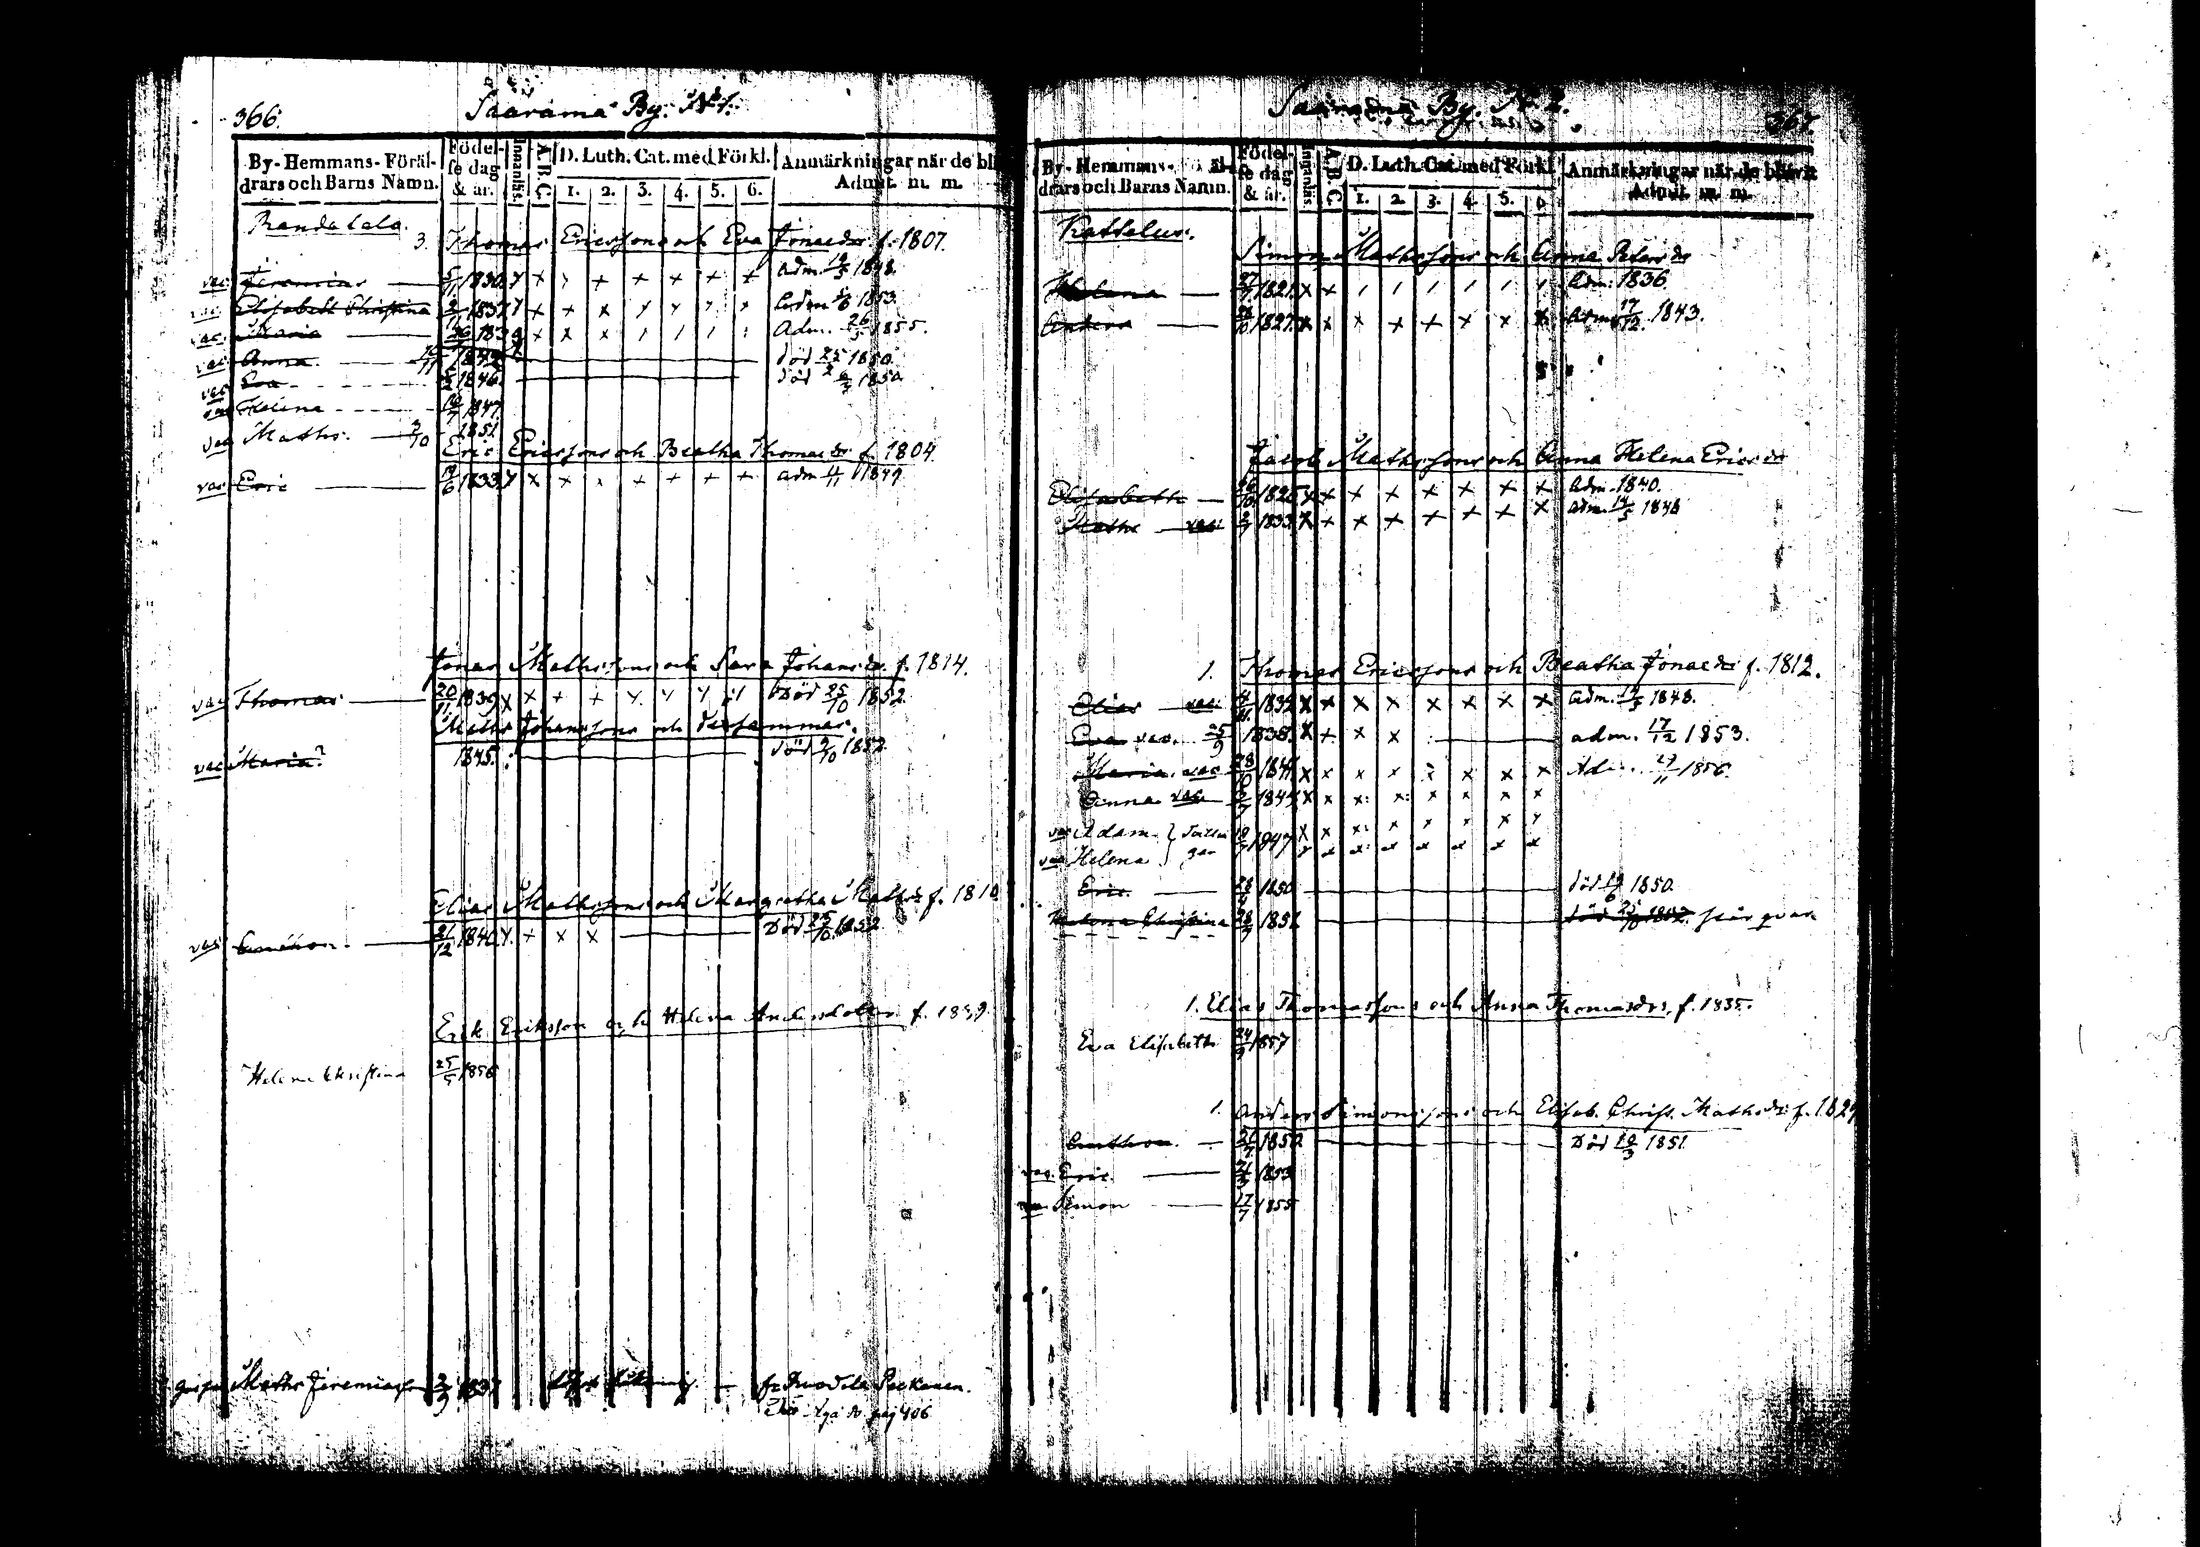 366. Saarama By. N:1.
By- Hemmans- Föräl-
drars och Barns Namn.
Födel-
se dag
& år.
Innanläs.
A.B.C.
D. Luth. Cat. med Förkl.
1. 2. 3. 4. 5. 6.
Anmärkningar när de bli
Admit. m. m.
Randalala.
3. Thomas Ericssons och Eva Jonaedr f. 1807.
vac Jeremias 5/11 1830. x x x + x x x x adm. 14/5 1848.
Elisabeth Christina 1837 x + x x x x x x 1853.
vac. Maria 26 1839 x x x x 1 1 1 1 Adm. 26/5 1855.
vac Anna 1842 död 25/2 1850
vac Eva 5/2 1846. död 1850
vac Helena 16/7 1847.
vac Maths. 3/10 1851
Eric Ericssons och Beatha Thomaedr f. 1804.
vac Eric 19/6 1833. x x x x + + + + adm 4/11 1849
Jonas Mathssons och Sara Johansdr. f. 1814.
vac Thomas 20/11 1839 x x + + x x x x Död 25/10 1852
Maths Johanssons och densamma.
vac Maria? 1845. död 9/10 1852
Elias Mathssons och Margretha Mathsdr f. 1810
vac 21/12 1840 x + x x Död 25/10 1852
Erik Eriksson och Helena Andersdotter f.
Helena Christina 25/5 1856
Maths Jeremiasson 2/9 1837
pag 406
Saarama By. N:2.
367.
By- Hemmans- Föräl-
drars och Barns Namn.
Födel-
se dag
& år.
Innanläs.
A.B.C.
D. Luth. Cat. med Förkl.
1. 2. 3. 4. 5. 6.
Anmärkningar när de blifvit
Admit. m. m.
Kattelus.
Simon Mathssons och Anna Petersdr
Helena 27/7 1821. x + 1 1 1 1 1 1 Adm. 1836.
Anders 1827. x x x x + x x x Adm. 17/12. 1843.
Jacob Mathssons och Anna Helena Ericsdr
Elisabeth 1825 x x x x x x x x Adm. 1840.
Maths vac 1833. x + x x + + x x adm. 14/5 1848
1. Thomas Ericssons och Beatha Jonaedr f. 1812.
Elias vac. 4/11 1832 x x x x x x x x adm. 14/5 1848.
Eva vac. 25/9 1838. x + x x adm. 17/12 1853.
Maria vac 28/10 1841 x x x x x x x x Adm. 27/11 1856.
Anna vac 1844 x x x: x: x x x x
vac Adam } Tvillin 18/7 1847 x x x: x x x x x
vac Helena } gar x x x: x x x x x
Eric 1850 död 1850.
Helena Christina 28/9 1851 död 25/10 1852. står qvar
1. Elias Thomassons och Anna Thomasdr, f. 1835.
Eva Elisabeth 24/9 1857
1. Anders Simonssons och Elisab. Christ. Mathsdr f. 1829
Anthon 1850 Död 10/3 1851
vac. Eric 1853
Simon 17/7 1855